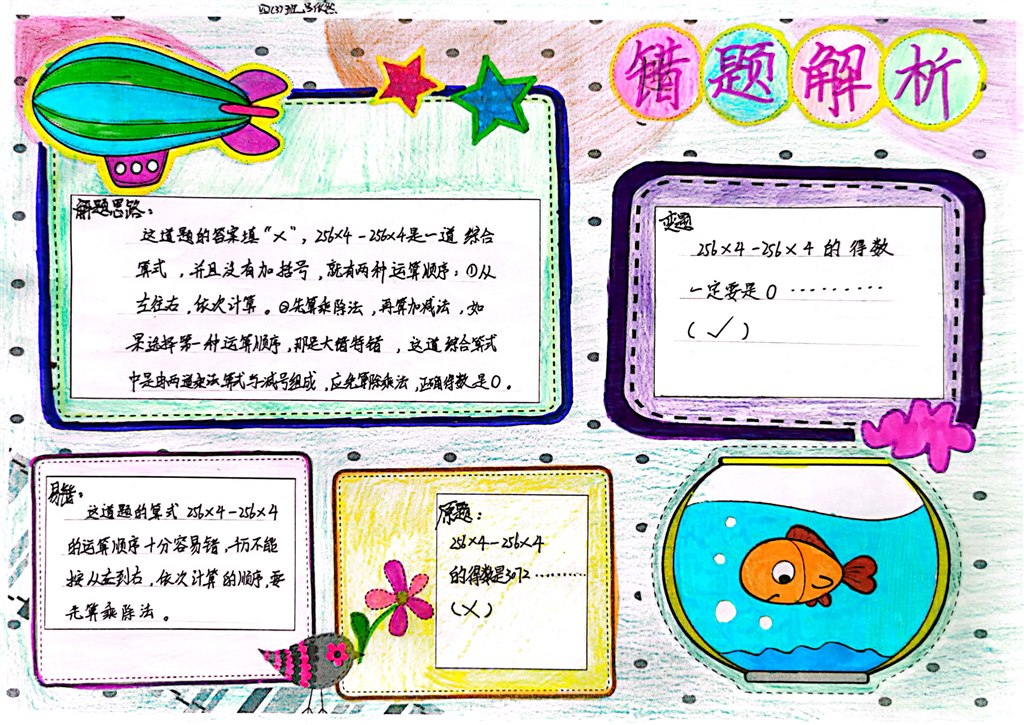 四(3)班
错题解析
解题思路：
这道题的答案填"×"，256×4-256×4是一道综合
算式，并且没有加括号，就有两种运算顺序：①从
左往右，依次计算。②先算乘除法，再算加减法，如
果选择第一种运算顺序，那是大错特错，这道综合算式
中是由两道乘法算式与减号组成，应先算除乘法，正确得数是0。
变题
256×4-256×4的得数
一定要是0………
(✓)
易错：
这道题的算式256×4-256×4
的运算顺序十分容易错，切不能
按从左到右，依次计算的顺序，要
先算乘除法。
原题：
256×4-256×4
的得数是3072………
(×)